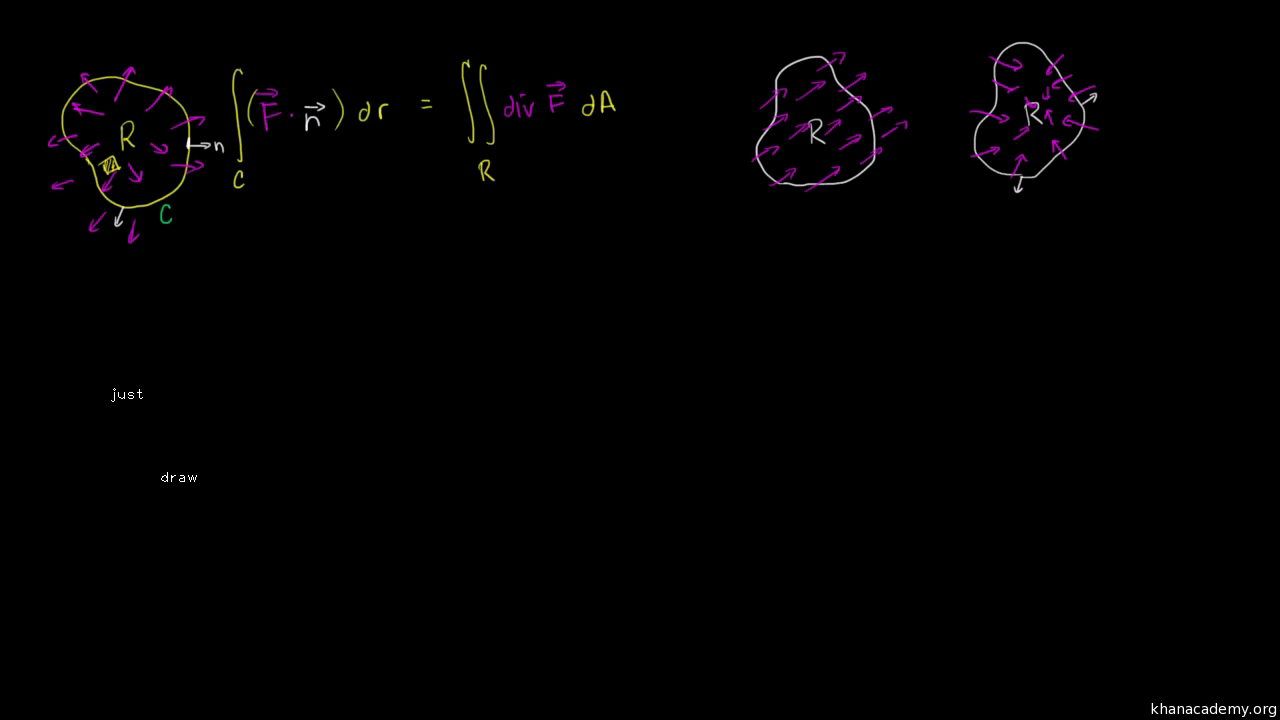 R n C
∫_C (F⃗ · n⃗) dr = ∬_R div F⃗ dA
R
R
just
draw
khanacademy.org